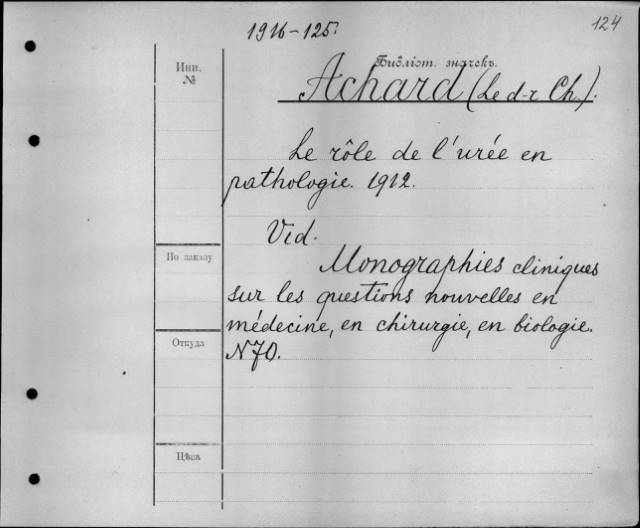 1916-125.
124
Инв.
№
Библіот. значекъ.
Achard (Le d-r Ch.).
Le rôle de l'urée en
pathologie. 1912.
Vid.
Monographies cliniques
sur les questions nouvelles en
médecine, en chirurgie, en biologie.
N70.
По заказу
Откуда
Цѣна